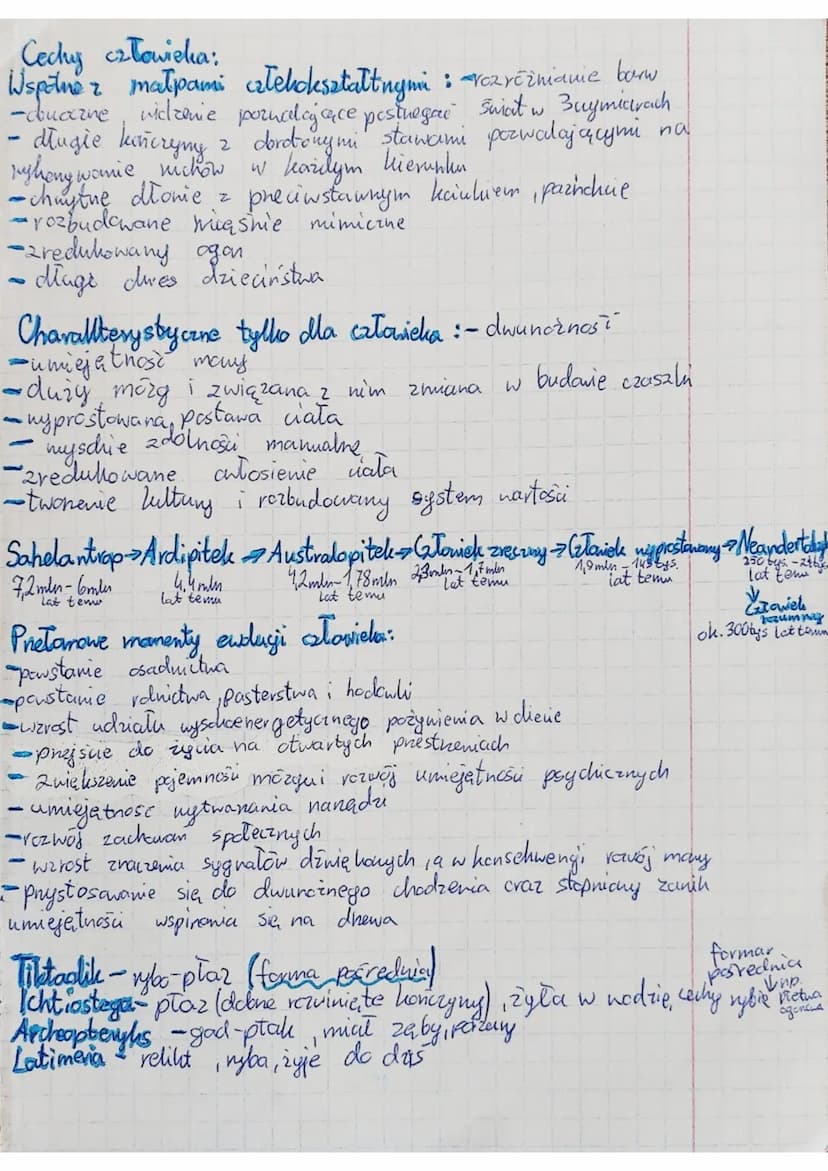 Cechy człowieka:
Wspólne z małpami człekokształtnymi : - rozróżnianie barw
- obuoczne widzenie pozwalające postrzegać świat w 3 wymiarach
- długie kończyny z obrotowymi stawami pozwalającymi na
wykonywanie ruchów w każdym kierunku
- chwytne dłonie z przeciwstawnym kciukiem, paznokcie
- rozbudowane mięśnie mimiczne
- zredukowany ogon
- długi okres dzieciństwa
Charakterystyczne tylko dla człowieka :- dwunożność
- umiejętność mowy
- duży mózg i związana z nim zmiana w budowie czaszki
- wyprostowana postawa ciała
- wysokie zdolności manualne
- zredukowane owłosienie ciała
- tworzenie kultury i rozbudowany system wartości
Sahelantrop → Ardipitek → Australopitek → Człowiek zręczny → Człowiek wyprostowany → Neandertalczyk
7,2mln - 6mln lat temu 4,4 mln lat temu 4,2mln - 1,78mln lat temu 2,3mln - 1,7mln lat temu 1,9mln - 143 tys. lat temu 250 tys. - lat temu
↓
Człowiek rozumny
ok. 300tys lat temu
Przełomowe momenty ewolucji człowieka:
- powstanie osadnictwa
- powstanie rolnictwa, pasterstwa i hodowli
- wzrost udziału wysokoenergetycznego pożywienia w diecie
- przejście do życia na otwartych przestrzeniach
- zwiększenie pojemności mózgu i rozwój umiejętności psychicznych
- umiejętność wytwarzania narzędzi
- rozwój zachowań społecznych
- wzrost znaczenia sygnałów dźwiękowych, a w konsekwencji rozwój mowy
- przystosowanie się do dwunożnego chodzenia oraz stopniowy zanik
umiejętności wspinania się na drzewa
Tiktaalik - rybo-płaz (forma pośrednia)
Ichtiostega - płaz (dobrze rozwinięte kończyny), żyła w wodzie, cechy rybie ↓ np. płetwa ogonowa
forma pośrednia
Archeopteryks - gad-ptak, miał zęby, pazury
Latimeria - relikt, ryba, żyje do dziś